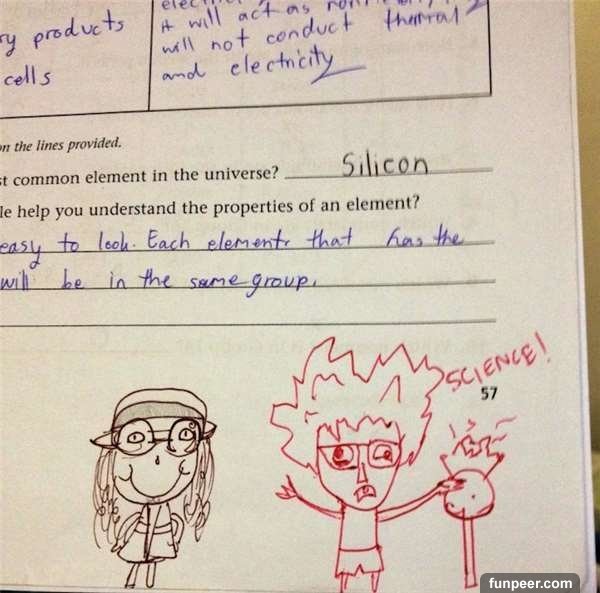 ry products
cells
it will act as
will not conduct thermal
and electricity
on the lines provided.
st common element in the universe? Silicon
le help you understand the properties of an element?
easy to look. Each element that has the
will be in the same group.
SCIENCE!
57
funpeer.com